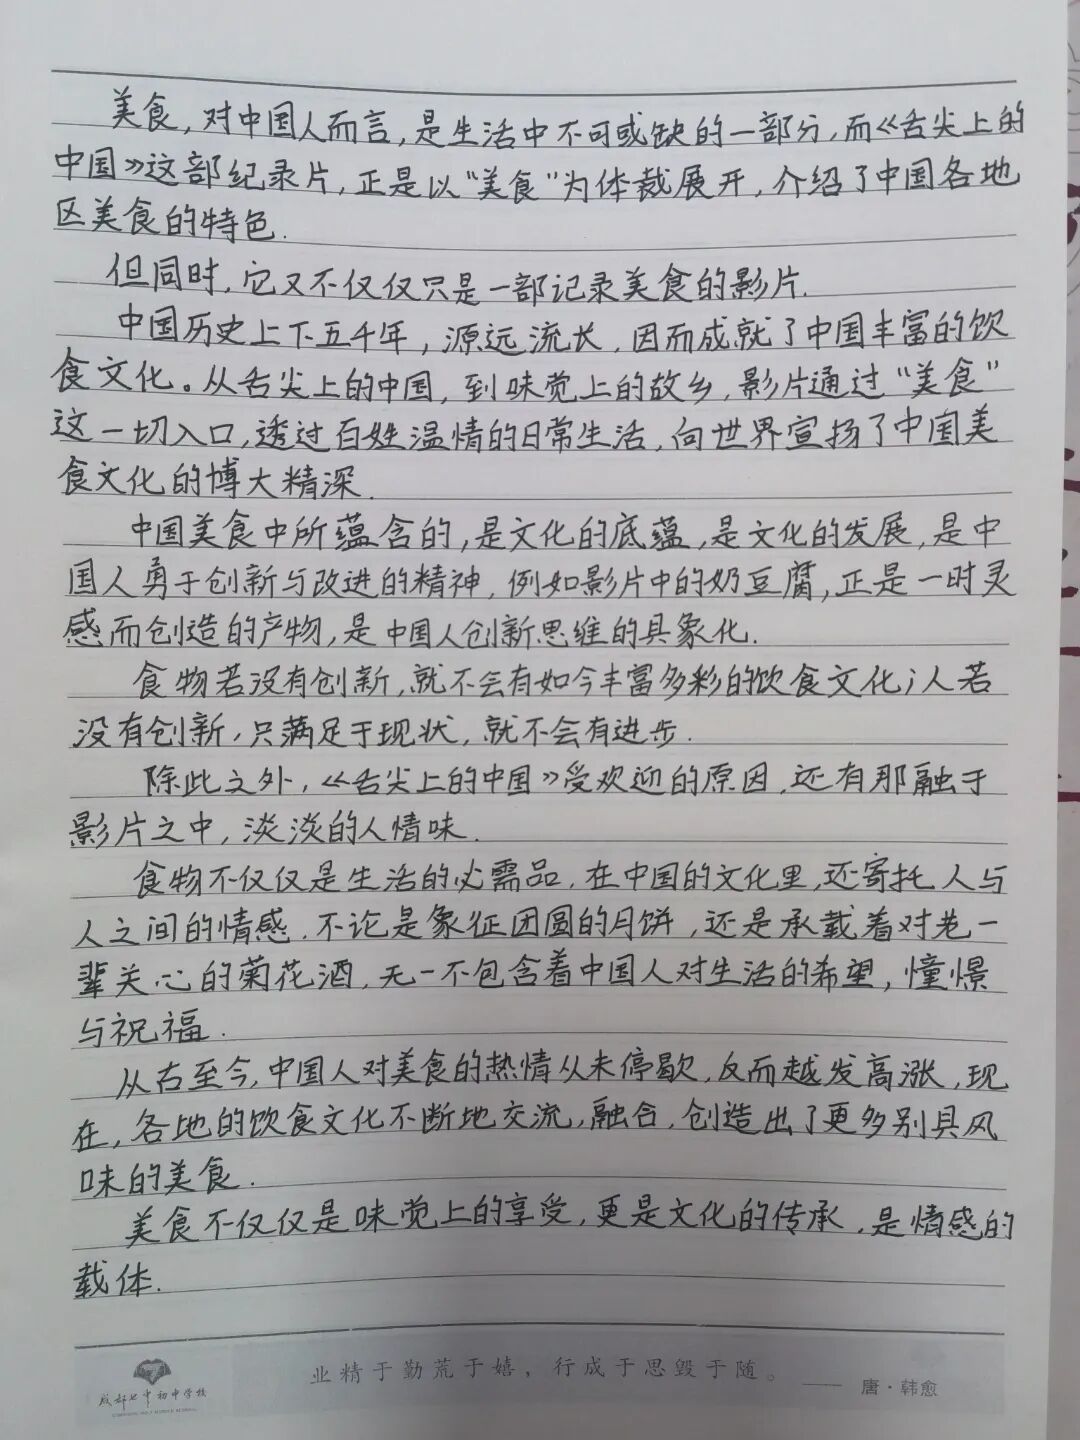 美食,对中国人而言,是生活中不可或缺的一部分,而《舌尖上的
中国》这部纪录片,正是以“美食”为体裁展开,介绍了中国各地
区美食的特色.
但同时,它又不仅仅只是一部记录美食的影片.
中国历史上下五千年,源远流长,因而成就了中国丰富的饮
食文化。从舌尖上的中国,到味觉上的故乡,影片通过“美食”
这一切入口,透过百姓温情的日常生活,向世界宣扬了中国美
食文化的博大精深.
中国美食中所蕴含的,是文化的底蕴,是文化的发展,是中
国人勇于创新与改进的精神,例如影片中的奶豆腐,正是一时灵
感而创造的产物,是中国人创新思维的具象化.
食物若没有创新,就不会有如今丰富多彩的饮食文化;人若
没有创新,只满足于现状,就不会有进步.
除此之外,《舌尖上的中国》受欢迎的原因,还有那融于
影片之中,淡淡的人情味.
食物不仅仅是生活的必需品,在中国的文化里,还寄托人与
人之间的情感.不论是象征团圆的月饼,还是承载着对老一
辈关心的菊花酒,无一不包含着中国人对生活的希望,憧憬
与祝福.
从古至今,中国人对美食的热情从未停歇,反而越发高涨,现
在,各地的饮食文化不断地交流,融合,创造出了更多别具风
味的美食.
美食不仅仅是味觉上的享受,更是文化的传承,是情感的
载体.
业精于勤荒于嬉,行成于思毁于随。——唐·韩愈
成都七中初中学校